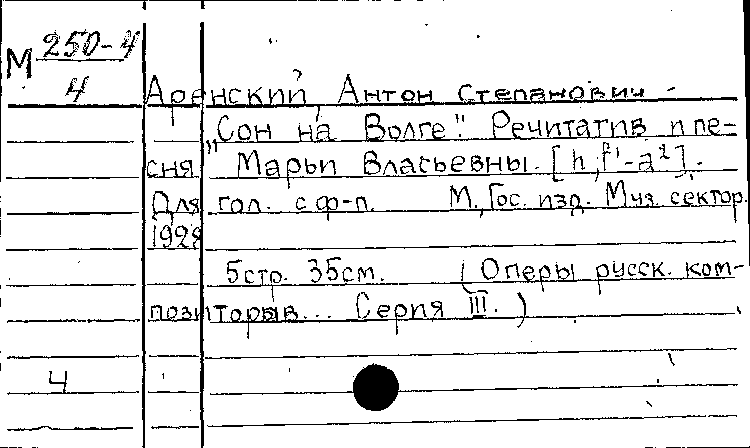 М 250-4
4
Аренский, Антон Степанович -
„Сон на Волге". Речитатив и пе-
сня Марьи Власьевны. [h; f¹-a²].
Для гол. с ф-п. М., Гос. изд. Муз. сектор.
1928
5 стр. 35 см. (Оперы русск. ком-
позиторыв... Серия III.)
4